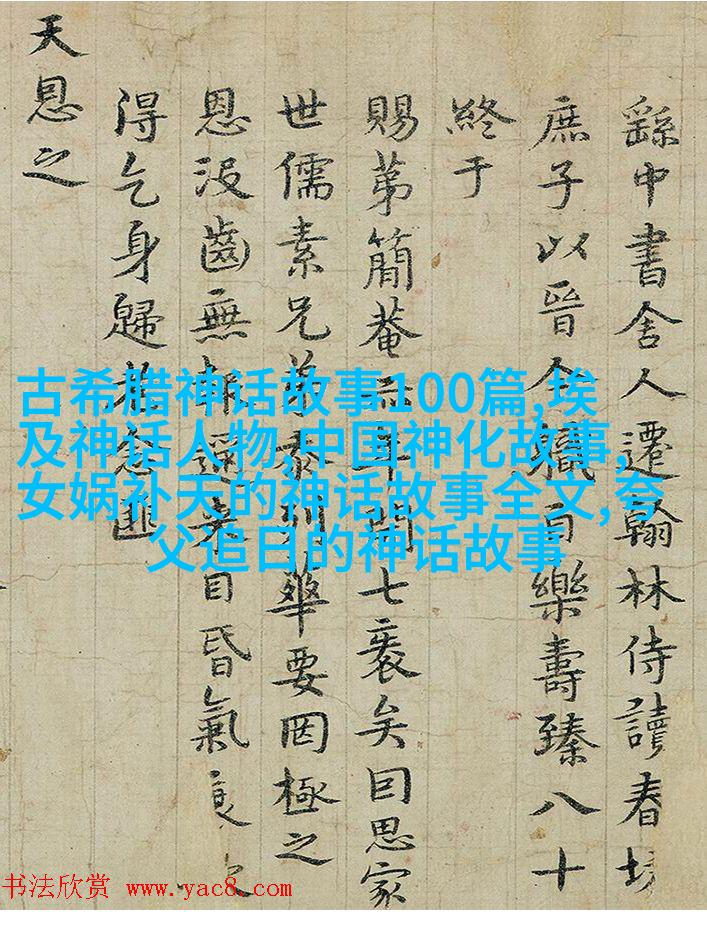 繇中書舍人遷翰林侍讀春坊
庶子以晉今職樂壽臻八十
終于
賜第簡菴年開七袠矣囙思家
世儒素兄弟忝列華要罔極之
恩沒齒無報邇來目昏氣衰
得乞身歸
天恩之
古希腊神话故事100篇,埃
及神话人物,中国神化故事,
女娲补天的神话故事全文,夸
父追日的神话故事
书法欣赏 www.yac8.com